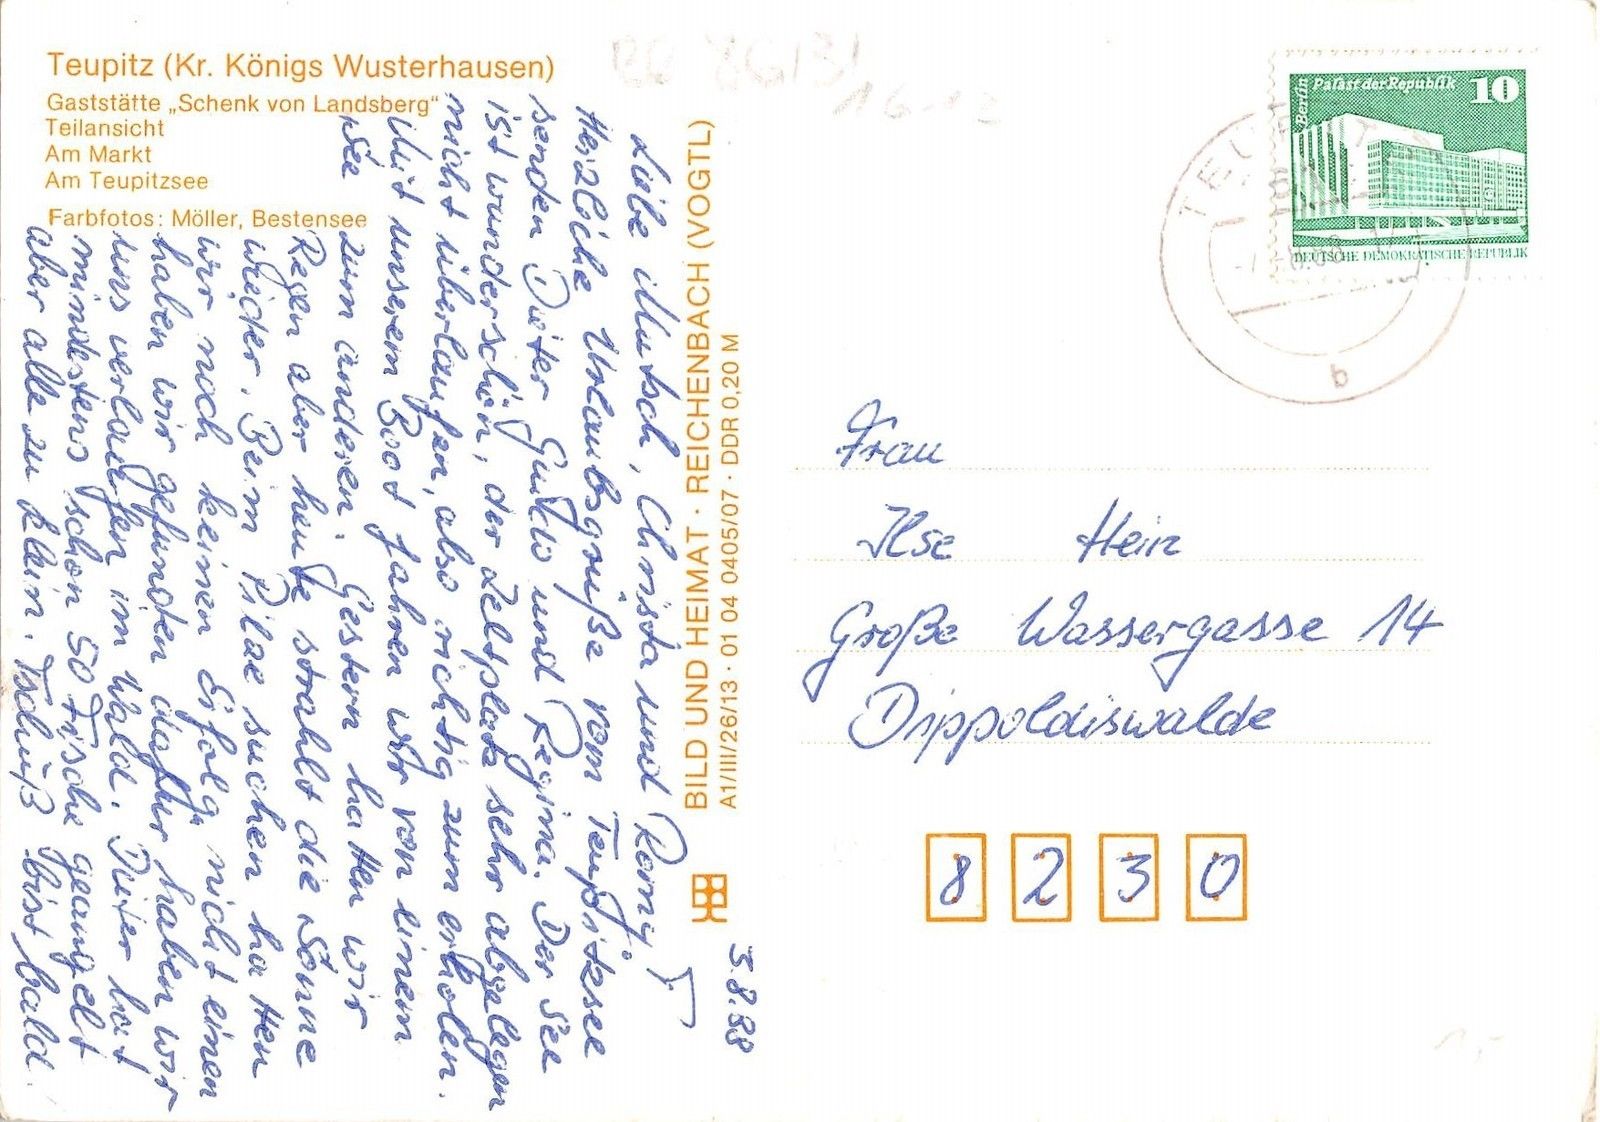 Teupitz (Kr. Königs Wusterhausen)
Gaststätte „Schenk von Landsberg“
Teilansicht
Am Markt
Am Teupitzsee
Farbfotos: Möller, Bestensee
5.8.88
Liebe Mutsch, Christa und Romy!
Herzliche Urlaubsgrüße vom Teupitzsee
senden Dieter Guido und Regina. Der See
ist wunderschön, der Zeltplatz sehr abgelegen
nicht überlaufen, also richtig zum erholen.
Mit unserem Boot fahren wir von einem
See
zum anderen. Gestern hatten wir
Regen aber heute strahlt die Sonne
wieder. Beim Pilze suchen hatten
wir noch keinen Erfolg nicht einen
haben wir gefunden dafür haben wir
uns verlaufen im Wald. Dieter hat
mindestens schon 50 Fische geangelt
aber alle zu klein. Tschüß bist bald.
BILD UND HEIMAT · REICHENBACH (VOGTL)
A1/III/26/13 · 01 04 0405/07 · DDR 0,20 M
Berlin Palast der Republik 10
DEUTSCHE DEMOKRATISCHE REPUBLIK
Frau
Ilse Hein
Große Wassergasse 14
Dippoldiswalde
8230